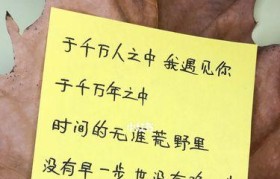 于千万人之中 我遇见你
于千万年之中
时间的无涯荒野里
没有早一步 也没有